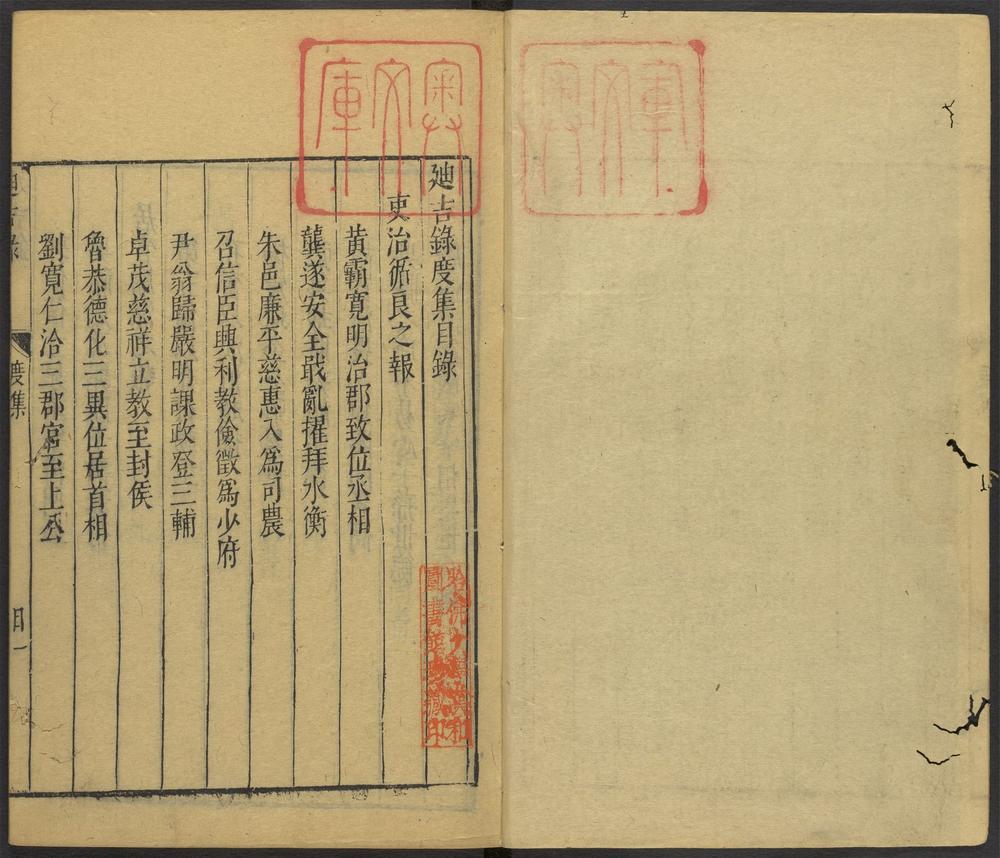 廸吉錄度集目錄
吏治循良之報
黄霸寛明治郡致位丞相
龔遂安全戢亂擢拜水衡
朱邑廉平慈惠入爲司農
召信臣興利教儉徵爲少府
尹翁歸嚴明課政登三輔
卓茂慈祥立教至封侯
魯恭德化三異位居首相
劉寛仁洽三郡官至上公
度集
目一
奥文庫
哈佛大學漢和圖書館珍藏印